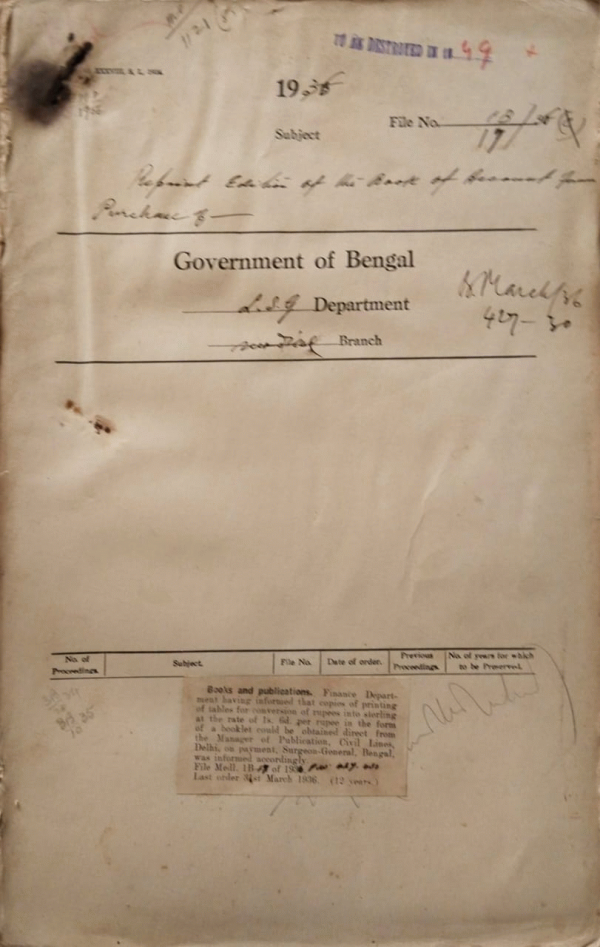 TO BE DESTROYED IN 19 49
XXXVIII, S. L., 1904.
1936
File No. 1B/19/36
Subject
Reprint Edition of the Book of Account
Purchase of —
Government of Bengal
L.S.G Department
Medical Branch
B. March/36
427-30
No. of Proceedings.
Subject.
File No.
Date of order.
Previous Proceedings.
No. of years for which to be Preserved.
Books and publications. Finance Depart-
ment having informed that copies of printing
of tables for conversion of rupees into sterling
at the rate of 1s. 6d. per rupee in the form
of a booklet could be obtained direct from
the Manager of Publication, Civil Lines,
Delhi, on payment, Surgeon-General, Bengal,
was informed accordingly.
File Medl. 1B-19 of 1936,
Last order 31st March 1936. (12 years.)